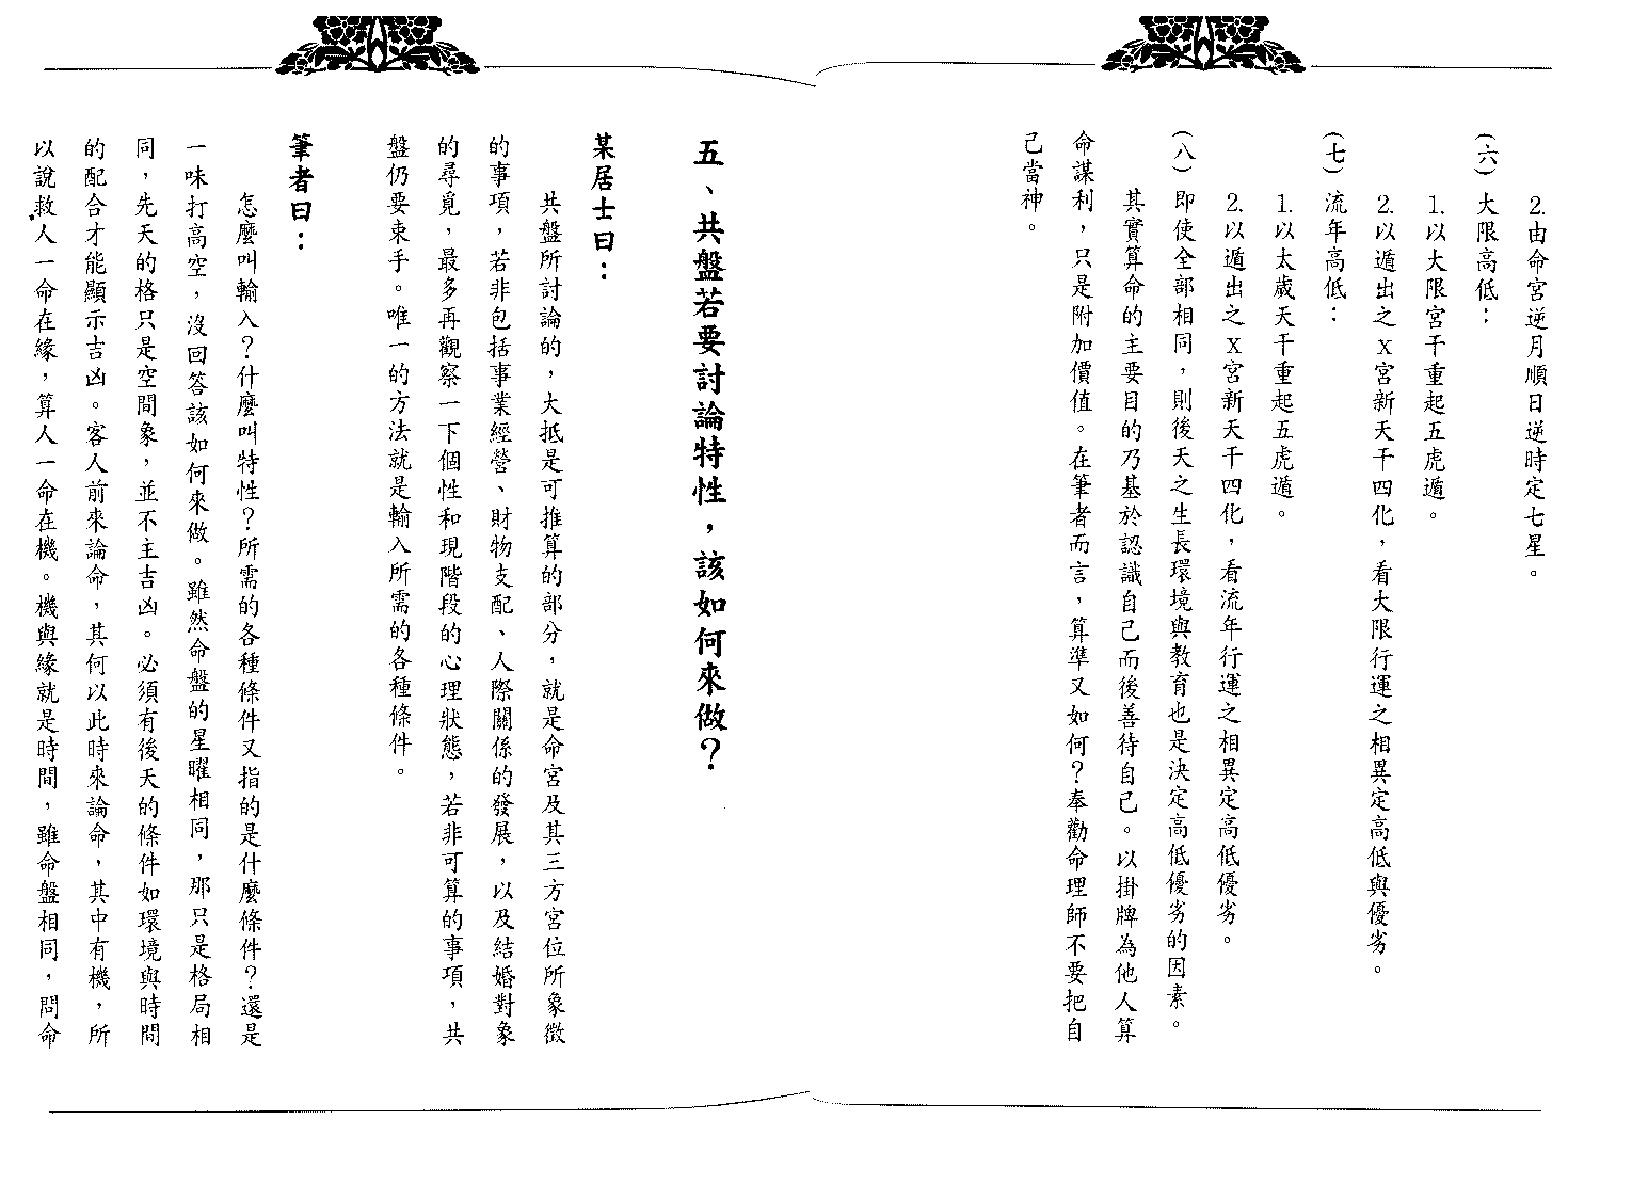 2.由命宮逆月順日逆時定七星。
(六)大限高低：
1.以大限宮干重起五虎遁。
2.以遁出之X宮新天干四化，看大限行運之相異定高低與優劣。
(七)流年高低：
1.以太歲天干重起五虎遁。
2.以遁出之X宮新天干四化，看流年行運之相異定高低優劣。
(八)即使全部相同，則後天之生長環境與教育也是決定高低優劣的因素。
其實算命的主要目的乃基於認識自己而後善待自己。以掛牌為他人算
命謀利，只是附加價值。在筆者而言，算準又如何？奉勸命理師不要把自
己當神。
五、共盤若要討論特性，該如何來做？
某居士曰：
共盤所討論的，大抵是可推算的部分，就是命宮及其三方宮位所象徵
的事項，若非包括事業經營、財物支配、人際關係的發展，以及結婚對象
的尋覓，最多再觀察一下個性和現階段的心理狀態，若非可算的事項，共
盤仍要束手。唯一的方法就是輸入所需的各種條件。
筆者曰：
怎麼叫輸入？什麼叫特性？所需的各種條件又指的是什麼條件？還是
一味打高空，沒回答該如何來做。雖然命盤的星曜相同，那只是格局相
同，先天的格只是空間象，並不主吉凶。必須有後天的條件如環境與時間
的配合才能顯示吉凶。客人前來論命，其何以此時來論命，其中有機，所
以說救人一命在緣，算人一命在機。機與緣就是時間，雖命盤相同，問命